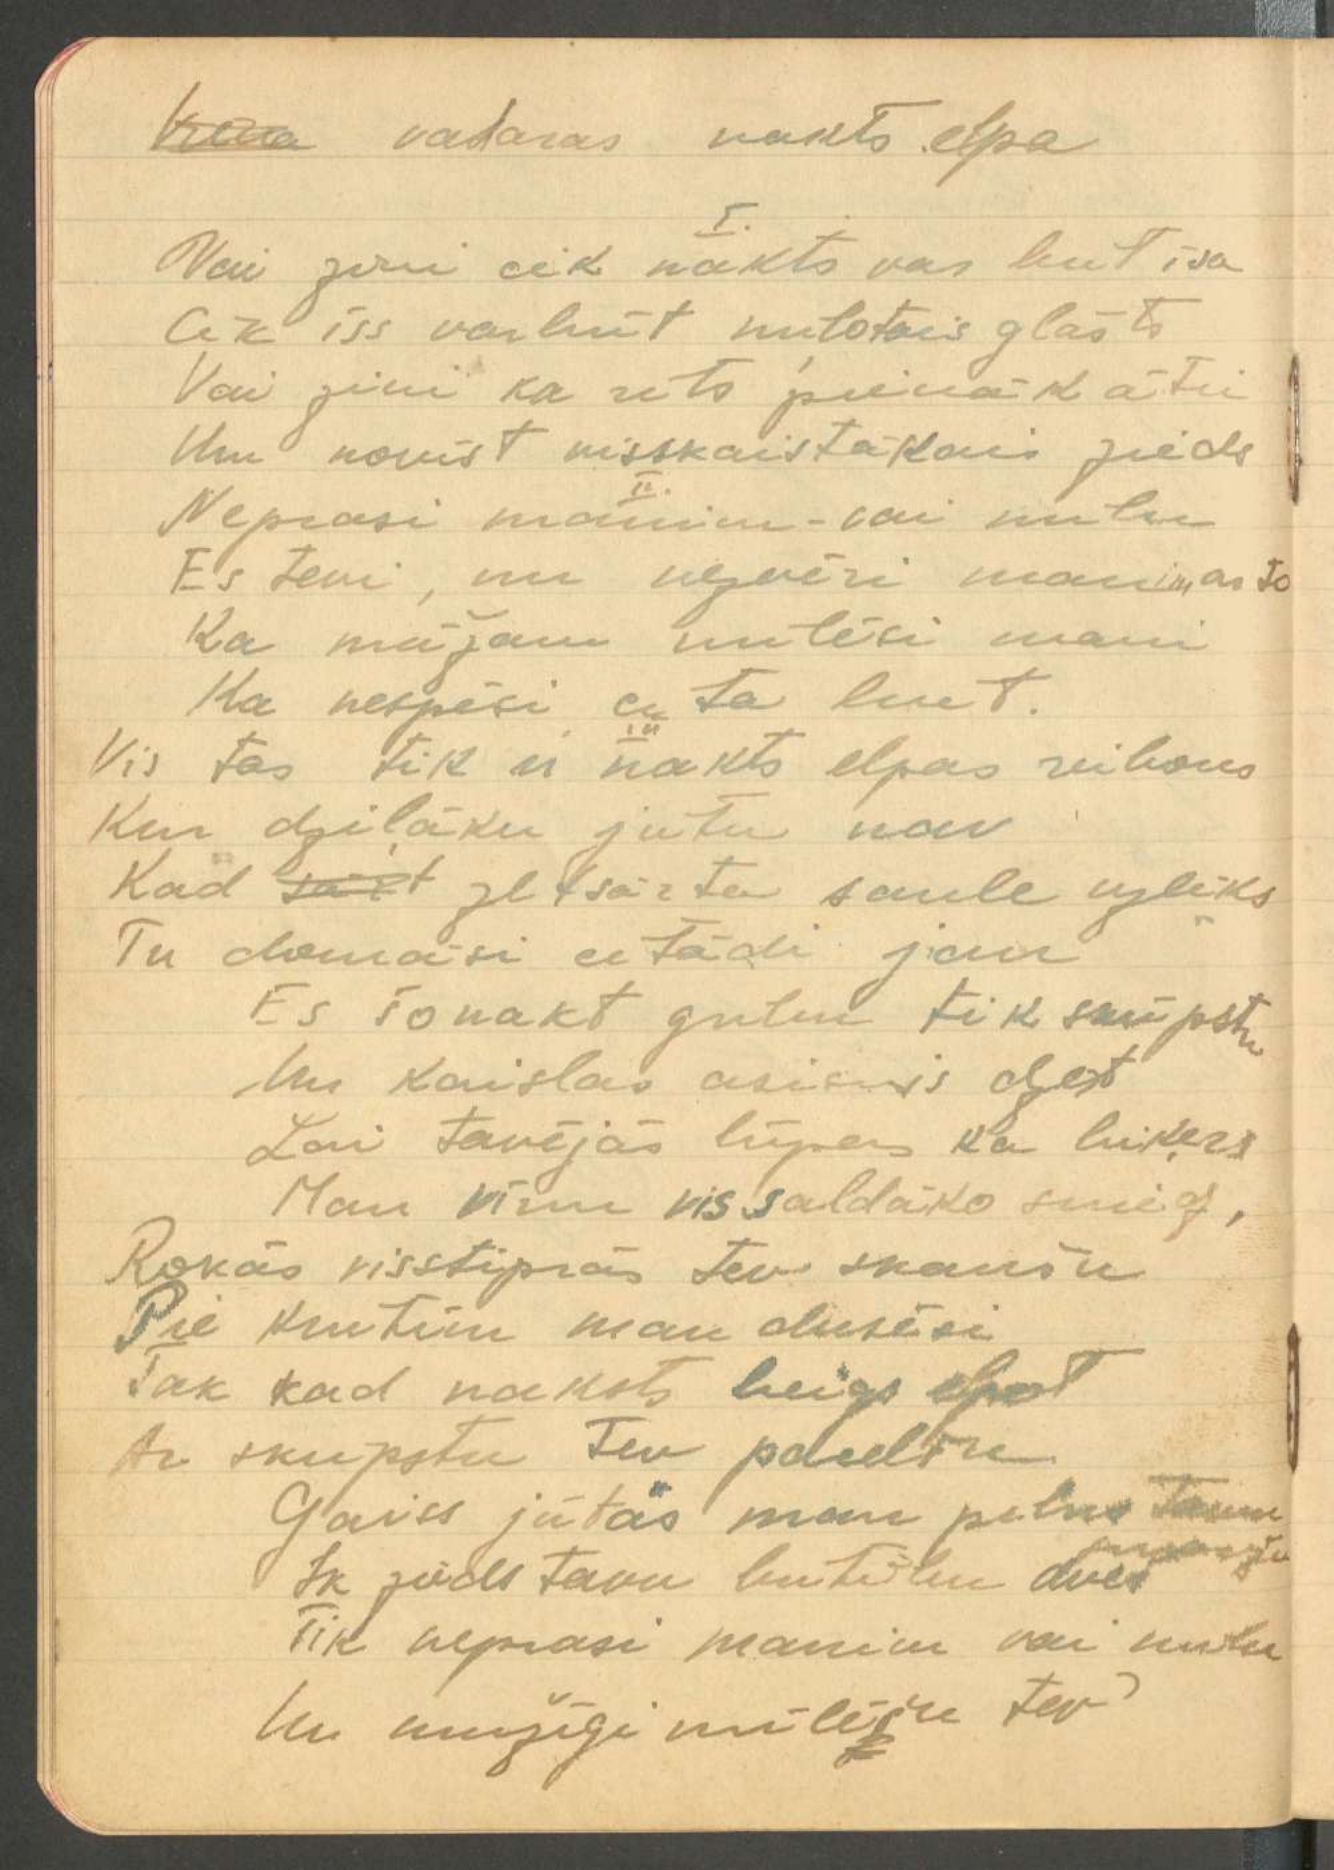 vasaras nakts elpa
I.
Vai zini cik nakts var but īsa
Cik īss varbūt mīlotais glāsts
Vai zini ka rīts pienāk ātri
Un novīst visskaistākais zieds
II.
Neprasi manim - vai mīlu
Es tevi, un nezvēri manim ar to
Ka mūžam mīlēsi mani
Ka nespēsi citā but.
III
Vis tas tik ir nakts elpas reibons
Kur dziļāku jutu nav
Kad zeltsārta saule uzlēks
Tu domāsi citādi jau
Es šonakt gribu tik skūpstu
Un kaislas asinis dzest
Lai tavējās lūpas ka biķers
Man vīnu vissaldāko sniedz,
Rokās visstiprās tev skaušu
Pie krutīm man dusēsi
Tak kad nakts beigs elpot
Ar skupstu Tev pavadīšu
Gaiss jūtās man pilns
Ik zieds tavu tuvību dveš
Tik neprasi manim vai mīlu
Un mužīgi mīlēšu tev